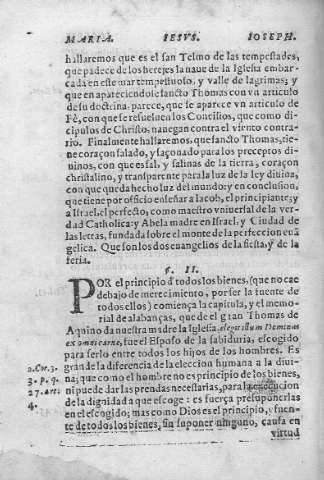 MARIA. IESVS. IOSEPH.
hallaremos que es el san Telmo de las tempestades,
que padece de los herejes la naue de la Iglesia embar-
cada en este mar tempestuoso, y valle de lagrimas; y
que en apareciendole sancto Thomas con vn articulo
de su doctrina, parece, que se aparece vn articulo de
Fè, con que se resueluen los Concilios, que como di-
cipulos de Christo, nauegan contra el viento contra-
rio. Finalmente hallaremos, que sancto Thomas, tie-
ne coraçon salado, y saçonado para los preceptos di-
uinos, con que es sal, y salinas de la tierra, coraçon
christalino, y transparente para la luz de la ley diuina,
con que queda hecho luz del mundo: y en conclusion,
que tiene por oficio enseñar a Iacob, el principiante; y
a Israel, el perfecto, como maestro vniuersal de la ver-
dad Catholica: y Abela madre en Israel, y Ciudad de
las letras, fundada sobre el monte de la perfeccion euã
gelica. Que son los dos euangelios de la fiesta, y de la
feria.
§. II.
POR el principio đ todos los bienes, (que no cae
debajo de merecimiento, por ser la fuente de
todos ellos) comiença la capitula, y el memo-
rial de alabanças, que de el gran Thomas de
Aquino da nuestra madre la Iglesia: elegit illum Dominus
ex omni carne, fue el Esposo de la sabiduria, escogido
para serlo entre todos los hijos de los hombres. Es
2. Cor. 3. grande la diferencia de la eleccion humana a la diui-
3. p. q. na; que como el hombre no es principio de los bienes,
27. art. ni puede dar las prendas necesarias, para la execucion
4. de la dignidad a que escoge: es fuerça presuponerlas
en el escogido; mas como Dios es el principio, y fuen-
te de todos los bienes, sin suponer ninguno, causa en
virtud